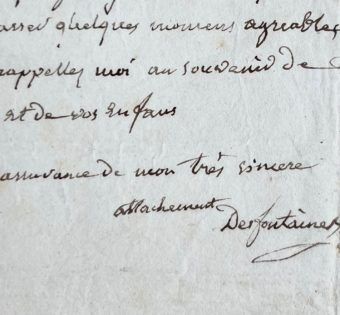 asser quelques momens agreables
rappellez moi au souvenir de
et de vos enfans
assurance de mon très sincere
attachement
Desfontaines